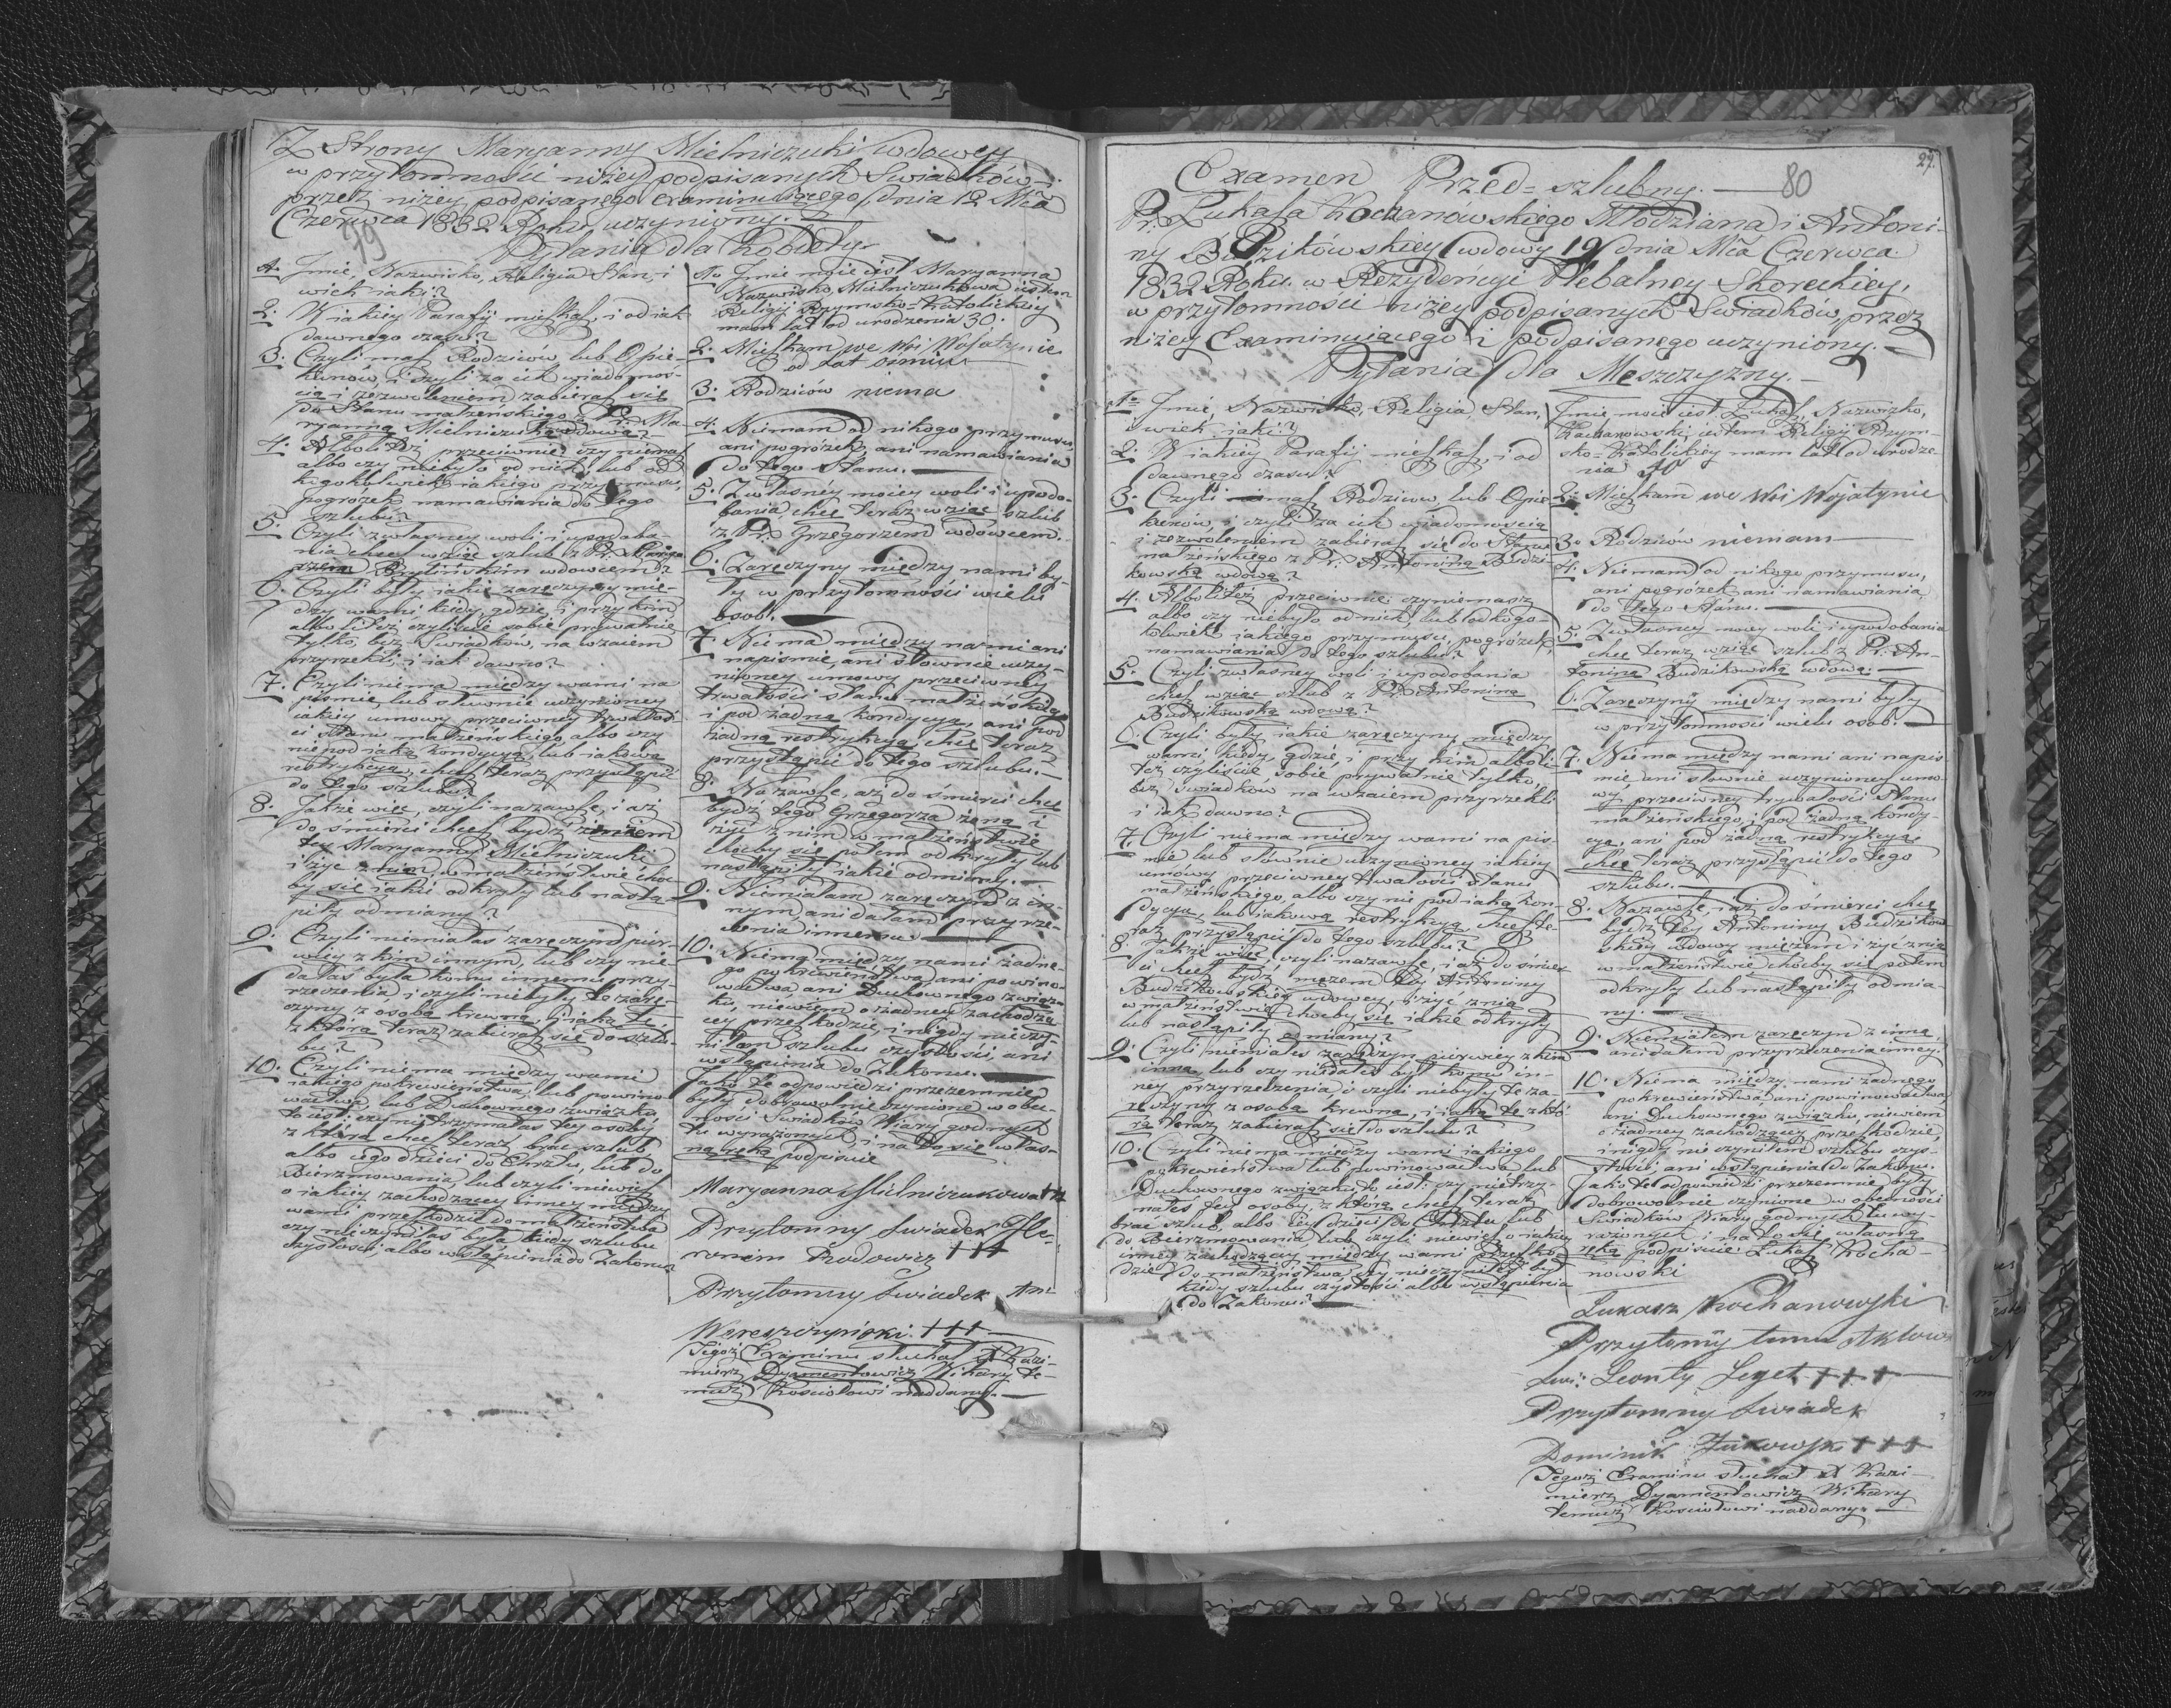 Z Strony Maryanny Mielniczuki wdowey
w przytomności niżey podpisanych Swiadków
przez niżey podpisanego examinuiącego dnia 12 Mca
Czerwca 1832 Roku uczyniony.
79
Pytania dla Kobiety.
1. Jmie, Nazwisko, Religia Stan, i
wiek iaki?
2. W iakiey Parafij mieszkasz, i od iak
dawnego czasu?
3. Czyli masz Rodziców lub Opie-
kunów, i czyli za ich wiadomoś-
cią i zezwoleniem zabierasz się
do Stanu małżeńskiego z Pr. Ma-
ryanną Mielniczuką wdową?
4. Alboliteż przeciwnie: czy niemasz
albo czy niebyło od nich, lub od
kogokolwiek iakiego przymusu,
pogrożek namawiania do tego
szlubu?
5. Czyli z własney woli i upodoba-
nia chcesz wziąc szlub z Pr.
wdowcem?
6. Czyli były iakie zaręczyny mię-
dzy wami kiedy, gdzie, i przy kim
albo liteż czyliście sobie prywatnie
tylko, bez Swiadków, na wzaiem
przyrzekli, i iak dawno?
7. Czyli niema między wami na
piśmie, lub słownie uczynioney
iakiey umowy przeciwney trwałoś-
ci Stanu małżeńskiego, albo czy
nie pod iaką kondycyą, lub iakową
restrykcyą, chcesz teraz przystąpić
do tego szlubu?
8. Jakże więc, czyli nazawsze, i aż
do śmierci chcesz bydź
tey Maryanny Mielniczuki
i żyć z nim w małżeństwie choc-
by się iakie odkryły lub nastą-
piły odmiany?
9. Czyli niemiałaś zaręczyn pier-
wiey z kim innym, lub czy nie
dałaś była komu innemu przy-
rzeczenia, i czyli niebyły te zarę-
czyny z osobą krewną, i iaką te
z którą teraz zabierasz się do szlu-
bu?
10. Czyli niema między wami
iakiego pokrewieństwa, lub powino-
wactwa, lub Duchownego związku,
to iest: czy nietrzymałaś tey osoby
z którą chcesz teraz brać szlub,
albo iego dzieci do Chrztu, lub do
Bierzmowania, lub czyli niewiesz
o iakiey zachodzącey inney między
wami przeszkodzie do małżeństwa
czy nieczyniłaś była kiedy szlubu
czystości albo wstąpienia do Zakonu?
1o Jmie moie iest Maryanna
Nazwisko, Mielniczukowa iestem
Religij Rzymsko-Katolickiey
mam lat od urodzenia 30.
2. Mieszkam we Wsi Wojatynie
od lat ośmiu
3. Rodziców niema
4. Niemam od nikogo przymusu,
ani pogróżek, ani namawiania
do tego Stanu.
5. Z własney moiey woli i upodo-
bania chcę teraz wziąc szlub
z Pr. Grzegorzem wdowcem.
6. Zaręczyny między nami by-
ły w przytomności wielu
osob.
7. Niema między nami ani
napiśmie, ani słownie uczy-
nioney umowy przeciwney
trwałości stanu małżeńskiego
i pod żadną kondycyą, ani pod
żadną restrykcyą chcę teraz
przystąpić do tego szlubu.
8. Nazawsze, aż do śmierci chcę
bydź tego Grzegorza żoną i
żyć z nim w małżeństwie
choćby się potem odkryły lub
nastąpiły iakie odmiany.
9. Niemiałam zaręczyn z in-
nym, ani dałam przyrze-
czenia innemu.
10. Niema między nami żadne-
go pokrewieństwa, ani powino-
wactwa, ani Duchownego związ-
ku, niewiem o żadney zachodzą-
cey przeszkodzie, i nigdy nieczy-
niłam szlubu czystości, ani
wstąpienia do Zakonu.
Jako te odpowiedzi przezemnie
były dobrowolnie czynione w obec-
ności Swiadków Wiary godnych
tu wyrażonych i na to się włas-
ną ręką podpisuie
Maryanna Mielniczukowa +++
Przytomny świadek Hie-
ronim Rodowicz +++
Przytomny świadek An:
Wereszczyński +++
Tegoż Examinu słuchał X Kazi-
mierz Dyamentowicz Wikary te-
muż Kościołowi naddany.
27.
Examen Przed-szlubny.
80
Pr. Łukasza Kochanówskiego Młodziana i Antoni-
ny Budzikówskiey wdowy 19 dnia Mca Czerwca
1832 Roku w Rezydencyi Plebalney Skoreckiey,
w przytomności niżey podpisanych Swiadków, przez
niżey Examinuiącego i podpisanego uczyniony.
Pytania dla Meszczyzny.
1o Jmie, Nazwisko, Religia Stan,
i wiek iaki?
2. W iakiey Parafij mieszkasz, i od
dawnego czasu?
3. Czyli masz Rodziców lub Opie-
kunów, i czyli za ich wiadomością
i zezwoleniem zabierasz się do Stanu
małżeńskiego z Pr. Antoniną Budzi-
kowską wdową?
4. Alboliteż przeciwnie: czy niemasz
albo czy niebyło od nich, lub od kogo-
kolwiek iakiego przymusu, pogróżek,
namawiania do tego szlubu?
5. Czyli z własney woli i upodobania
chcesz wziąc szlub z Pr. Antoniną
Budzikowską wdową?
6. Czyli były iakie zaręczyny między
wami kiedy, gdzie, i przy kim alboli-
też czyliście sobie prywatnie tylko,
bez swiadków na wzaiem przyrzekli
i iak dawno?
7. Czyli niema między wami na piś-
mie lub słownie uczynioney iakiey
umowy przeciwney trwałości stanu
małżeńskiego, albo czy nie pod iaką kon-
dycyą, lub iakową restrykcyą chcesz te-
raz przystąpić do tego szlubu?
8. Jakże więc, czyli nazawsze, i aż do śmier-
ci chcesz bydź mężem tey Antoniny
Budzikowskiey wdowey, i żyć z nią
w małżeństwie, choćby się iakie odkryły
lub nastąpiły odmiany?
9. Czyli niemiałeś zaręczyn pierwiey z kim
inną, lub czy niedałeś był komu in-
ney przyrzeczenia i czyli niebyły te za-
ręczyny z osobą krewną, i iaką te z któ-
rą teraz zabierasz się do szlubu?
10. Czyli niema między wami iakiego
pokrewieństwa lub powinowactwa lub
Duchownego związku to iest: czy nietrzy-
małeś tey osoby, z którą chcesz teraz
brać szlub, albo iey dzieci do Chrztu, lub
do Bierzmowania lub czyli niewiesz o iakiey
inney zachodzącey między wami przeszko-
dzie do małżeństwa, czy nieczyniłeś był
kiedy szlubu czystości albo wstąpienia
do Zakonu?
Jmie moie iest Łukasz, Nazwizko,
Kochanowski, iestem Religij Rzym-
sko-Katolickiey mam lat od urodze-
nia 40
2. Mieszkam we Wsi Wojatynie
3o Rodziców niemam
4. Niemam od nikogo przymusu,
ani pogróżek ani namawiania
do tego Stanu.
5. Z własney moiey woli i upodobania
chcę teraz wziąc szlub z Pr. An-
toniną Budzikowską wdową.
6. Zaręczyny między nami były
w przytomności wielu osob.
7. Niema między nami ani napiś-
mie, ani słownie uczynioney umo-
wy przeciwney trwałości Stanu
małżeńskiego, i pod żadną kondy-
cyą, ani pod żadną restrykcyą
chcę teraz przystąpić do tego
szlubu.
8. Nazawsze, i aż do śmierci chcę
bydź tey Antoniny Budzikow-
skiey wdowy mężem i żyć z nią
w małżeństwie choćby się potem
odkryły lub nastąpiły odmia-
ny.
9. Niemiałem zaręczyn z inną
ani dałem przyrzeczenia inney.
10. Niema między nami żadnego
pokrewieństwa, ani powinowactwa
ani Duchownego związku, niewiem
o żadney zachodzącey przeszkodzie,
i nigdy nie czyniłem szlubu czys-
tości, ani wstąpienia do Zakonu.
Jako te odpowiedzi przezemnie były
dobrowolnie czynione w obecności
Swiadków Wiary godnych tu wy-
rażonych i na to się własną
ręką podpisuie: Łukasz Kocha-
nowski
Łukasz Kochanowski
Przytomny temu Aktowi
świ: Leonty Seget +++
Przytomny świadek
Dominik Żukowski +++
Tegoż Examinu słuchał X Kazi-
mierz Dyamentowicz Wikary
temuż Kościołowi naddany.